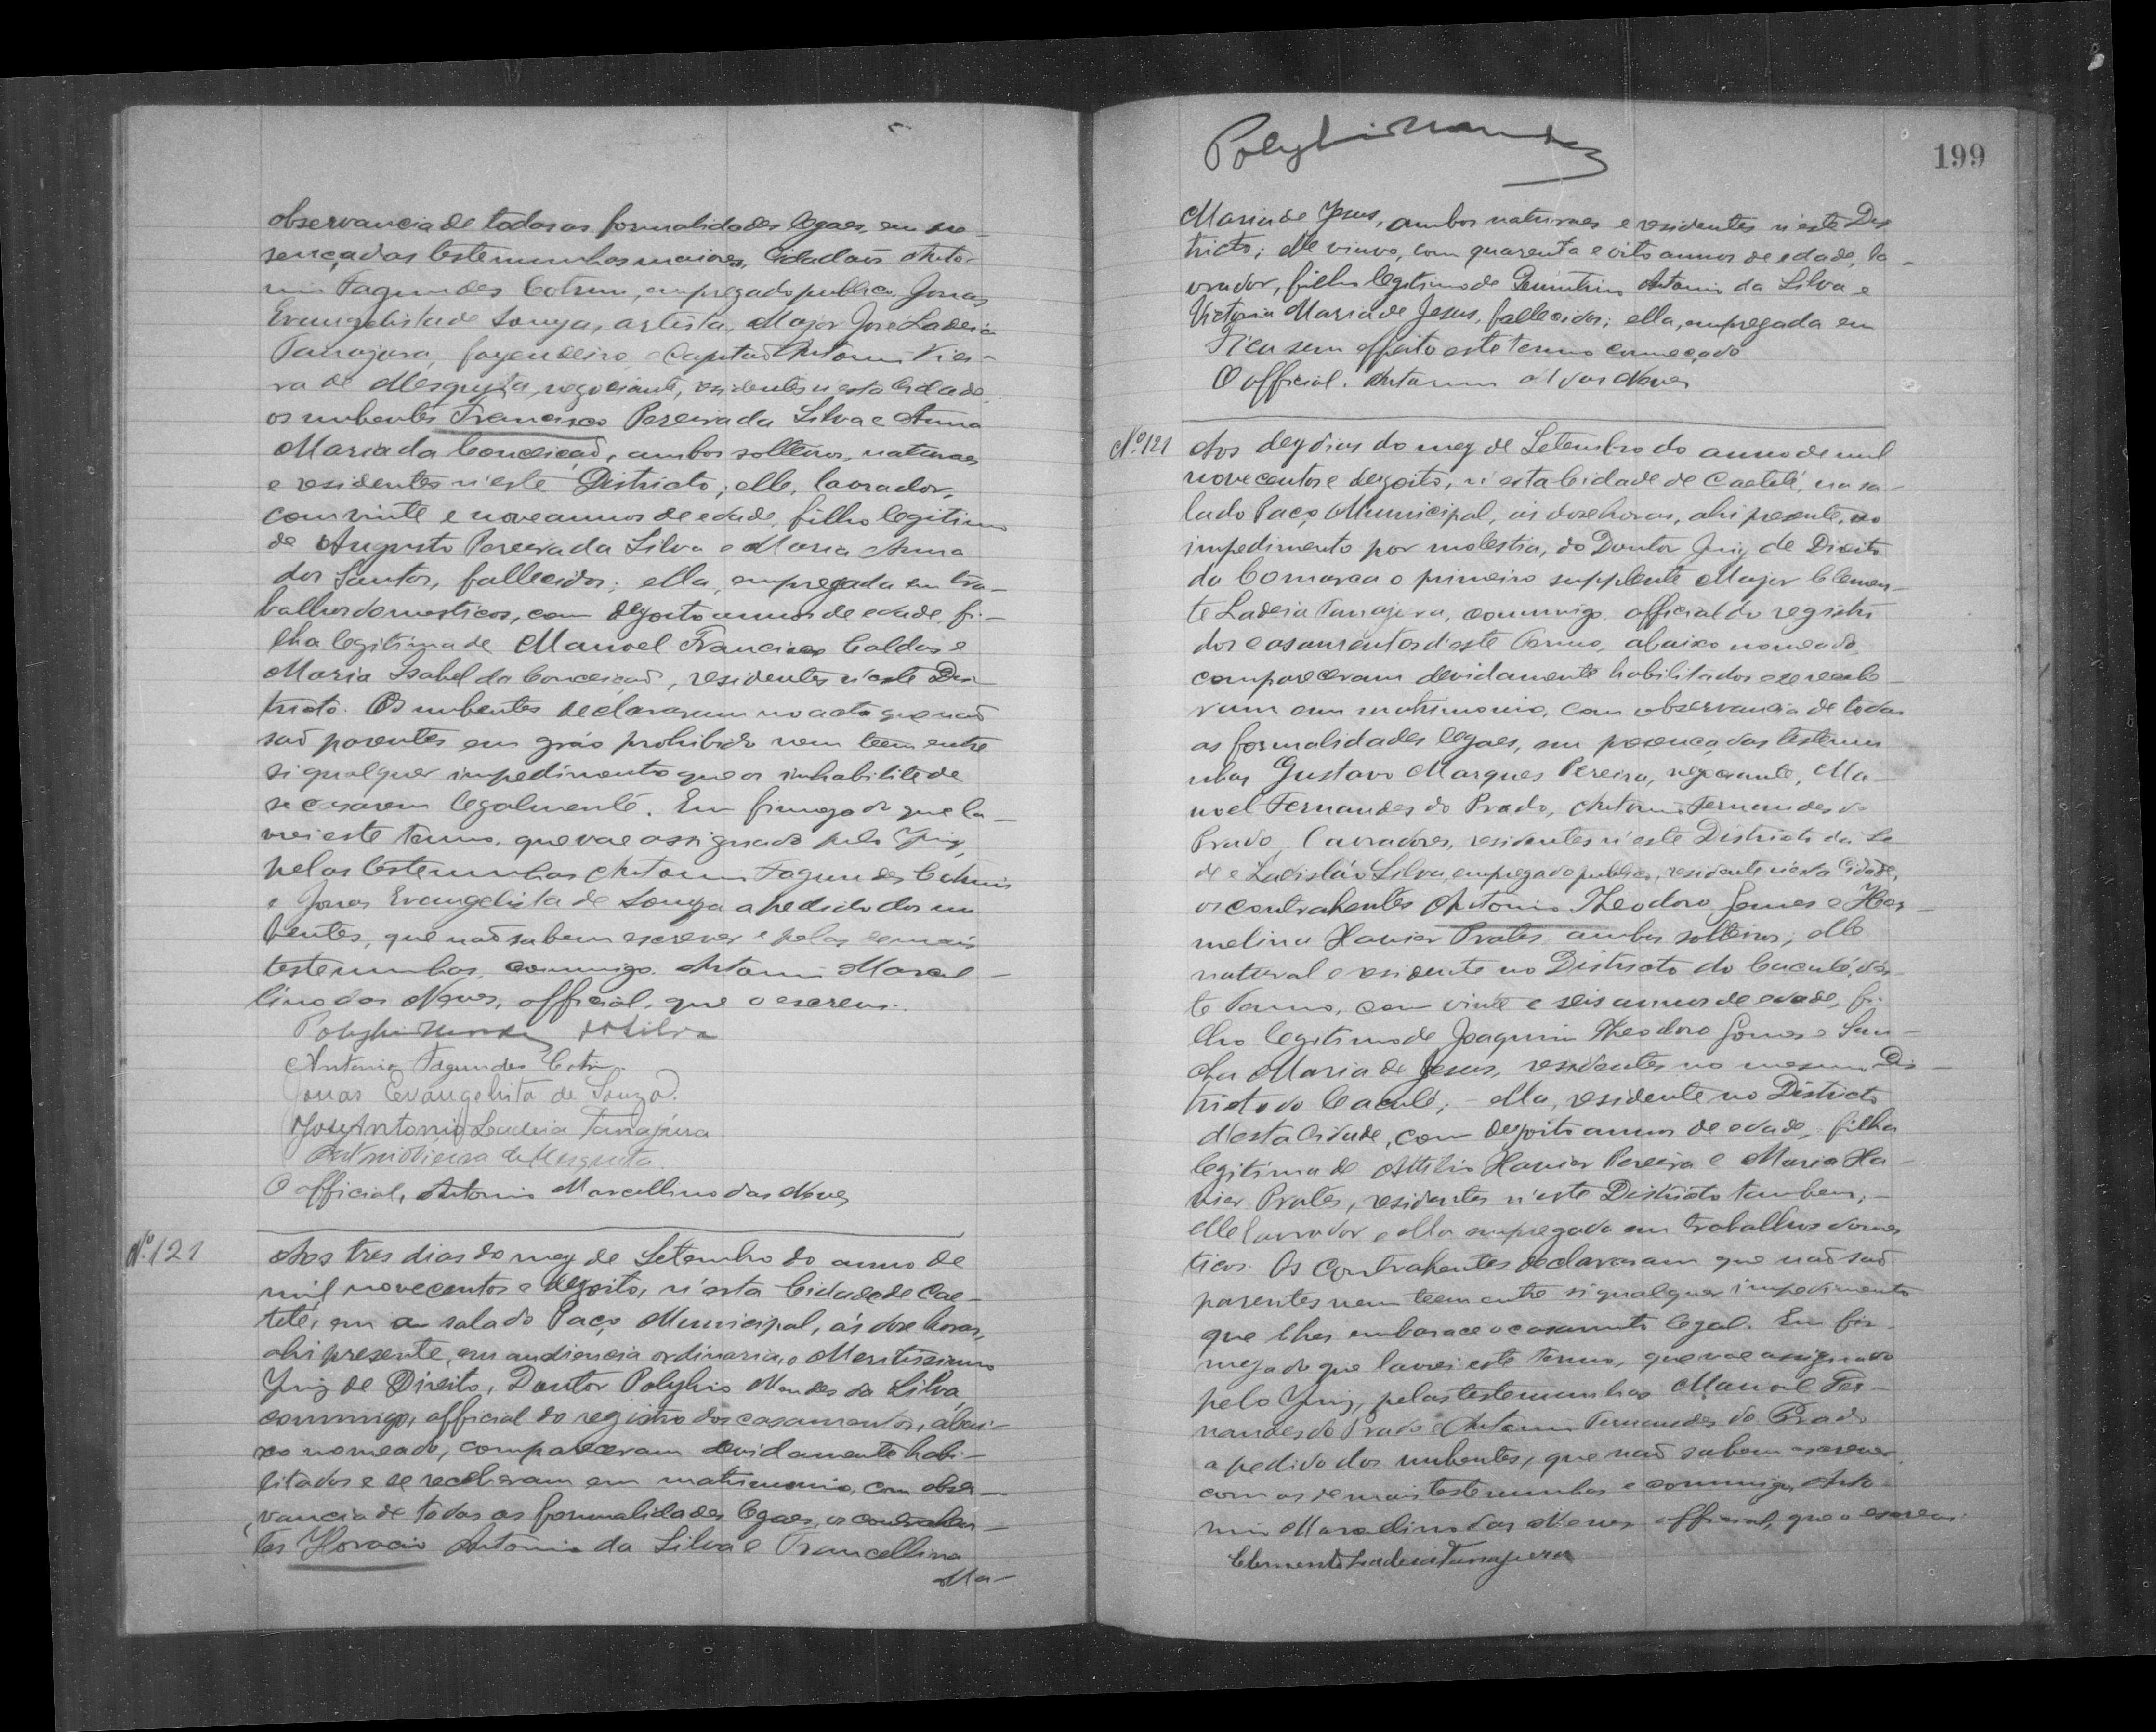 observancia de todas as formalidades legaes, em pre-
sença das testemunhas maiores, Cidadaõs Anto-
nio Fagundes Cotrim, empregado publico, Jonas
Evangelista de Souza, artista, Major José Ladeia
Tanajura, fazendeiro e Capitaõ Antonio Viei-
ra de Mesquita, negociante, residentes n'esta Cidade
os nubentes Francisco Pereira da Silva e Anna
Maria da Conceiçaõ, ambos solteiros, naturaes
e residentes n'este Districto; elle, lavrador,
com vinte e nove annos de edade, filho legitimo
de Augusto Pereira da Silva e Maria Anna
dos Santos, fallecidos; ella, empregada em tra-
balhos domesticos, com dezoito annos de edade, fi-
lha legitima de Manoel Francisco Caldas e
Maria Isabel da Conceiçaõ, residentes n'este Dis-
tricto. Os nubentes declararam no acto que naõ
saõ parentes em gráo prohibido nem teem entre
si qualquer impedimento que os inhabilite de
se casarem legalmente. Em firmeza do que la-
vrei este termo, que vae assignado pelo Juiz,
pelas testemunhas Antonio Fagundes Cotrim
e Jonas Evangelista de Souza a pedido dos nu
bentes, que naõ sabem escrever e pelas demais
testemunhas, commigo. Antonio Marcel-
lino das Neves, official, que o escrevi.
Polybio Mendes da Silva
Antonio Fagundes Cotrim
Jonas Evangelista de Souza.
José Antonio Ladeia Tanajura
Antonio Vieira de Mesquita.
O official, Antonio Marcellino das Neves
Nº 121
Aos tres dias do mez de Setembro do anno de
mil novecentos e dezoito, n'esta Cidade de Cae-
teté, em a sala do Paço Municipal, ás doze horas,
ahi presente, em audiencia ordinaria, o Meritissimo
Juiz de Direito, Doutor Polybio Mendes da Silva
commigo, official do registro dos casamentos, abai-
xo nomeado, compareceram devidamente habi-
litados e se receberam em matrimonio, com obser-
vancia de todas as formalidades legaes, os contrahen-
tes Horacio Antonio da Silva e Francellina
Ma-
Polybio Mendes
199
Maria de Jesus, ambos naturaes e residentes n'este Dis
tricto; elle viuvo, com quarenta e oito annos de edade, la-
vrador, filho legitimo de Antonio da Silva e
Victoria Maria de Jesus, fallecidos; ella, empregada em
Fica sem effeito este termo começado
O official. Antonio M das Neves
Nº 121
Aos dez dias do mez de Setembro do anno de mil
novecentos e dezoito, n'esta Cidade de Caeteté, na sa-
la do Paço Municipal, ás doze horas, ahi presente, no
impedimento por molestia, do Doutor Juiz de Direito
da Comarca o primeiro supplente Major Clemen-
te Ladeia Tanajura, commigo official do registro
dos casamentos d'este Termo, abaixo nomeado,
compareceram devidamente habilitados e se recebe-
ram em matrimonio, com observancia de todas
as formalidades legaes, em presença das testemu
nhas Gustavo Marques Pereira, negociante, Ma-
noel Fernandes do Prado, Antonio Fernandes do
Prado, lavradores, residentes n'este Districto da Se-
de e Ladisláo Silva, empregado publico, residente n'esta Cidade,
os contrahentes Antonio Theodoro Gomes e Her-
melina Xavier Prates, ambos solteiros; elle
natural e residente no Districto do Caculé, des-
te Termo, com vinte e seis annos de edade, fi-
lho legitimo de Joaquim Theodoro Gomes e San-
cha Maria de Jesus, residentes no mesmo Dis-
tricto do Caculé; - ella, residente no Districto
d'esta Cidade, com dezoito annos de edade, filha
legitima de Attilio Xavier Pereira e Maria Xa-
vier Prates, residentes n'este Districto tambem; -
elle lavrador e ella empregada em trabalhos domes
ticos. Os contrahentes declararam que naõ saõ
parentes nem teem entre si qualquer impedimento
que lhes embarace o casamento legal. Em fir-
meza do que lavrei este termo, que vae assignado
pelo Juiz, pelas testemunhas Manoel Fer-
nandes do Prado e Antonio Fernandes do Prado
a pedido dos nubentes, que naõ sabem escrever
com as demais testemunhas e commigo, Anto-
nio Marcellino das Neves official, que o escrevi.
Clemente Ladeia Tanajura